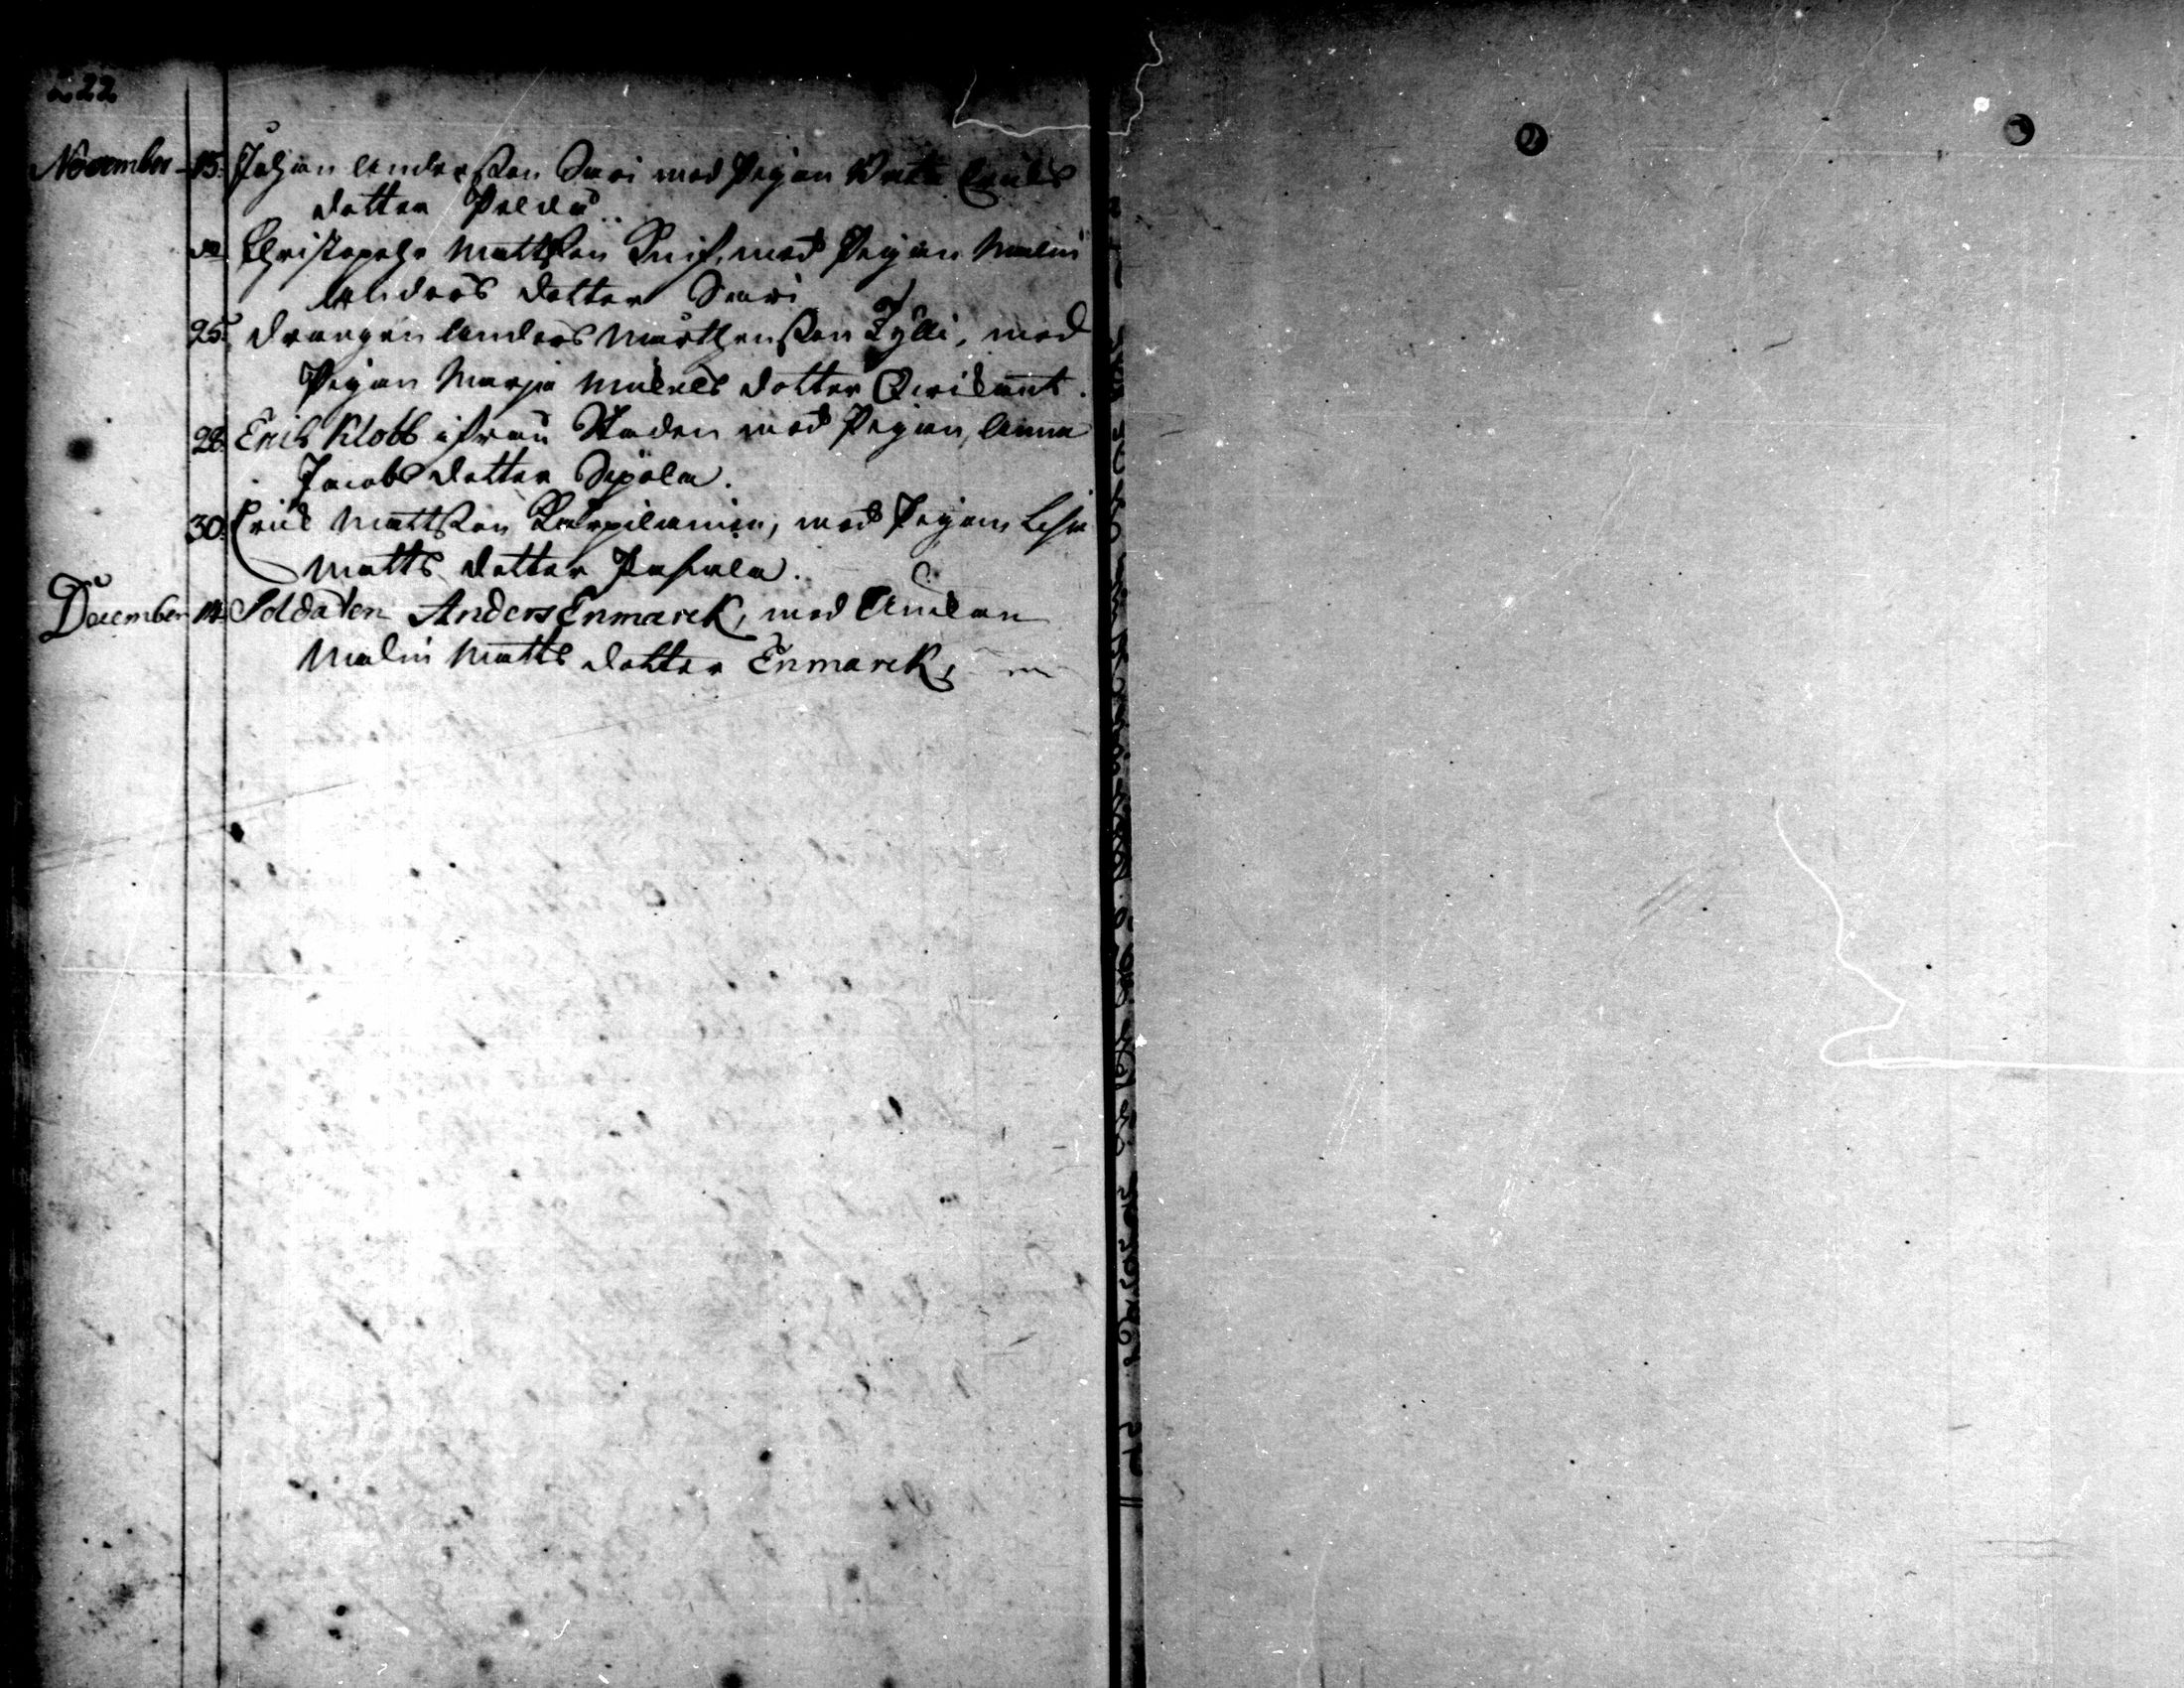 222
November 15. Johan Andersson Sari med Pigan Brita Erichs
dotter Peldů.
do Christopher Mattsson Knif, med Pigan Malin
Anders dotter Sari
25. Drängen Anders Mårthensson Tylli, med
Pigan Marja Michels dotter
28. Erich Klobb ifrån Staden med Pigan, Anna
Jacobs dotter Sipola.
30. Erich Mattsson med Pigan Lisa
Matts dotter Pasala.
December 14. Soldaten Anders Enmarck, med Änkan
Malin Matts dotter Enmarck,